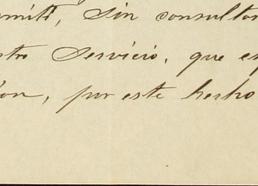 omité, sin consultar
stro Servicio, que es
ion, por este hecho